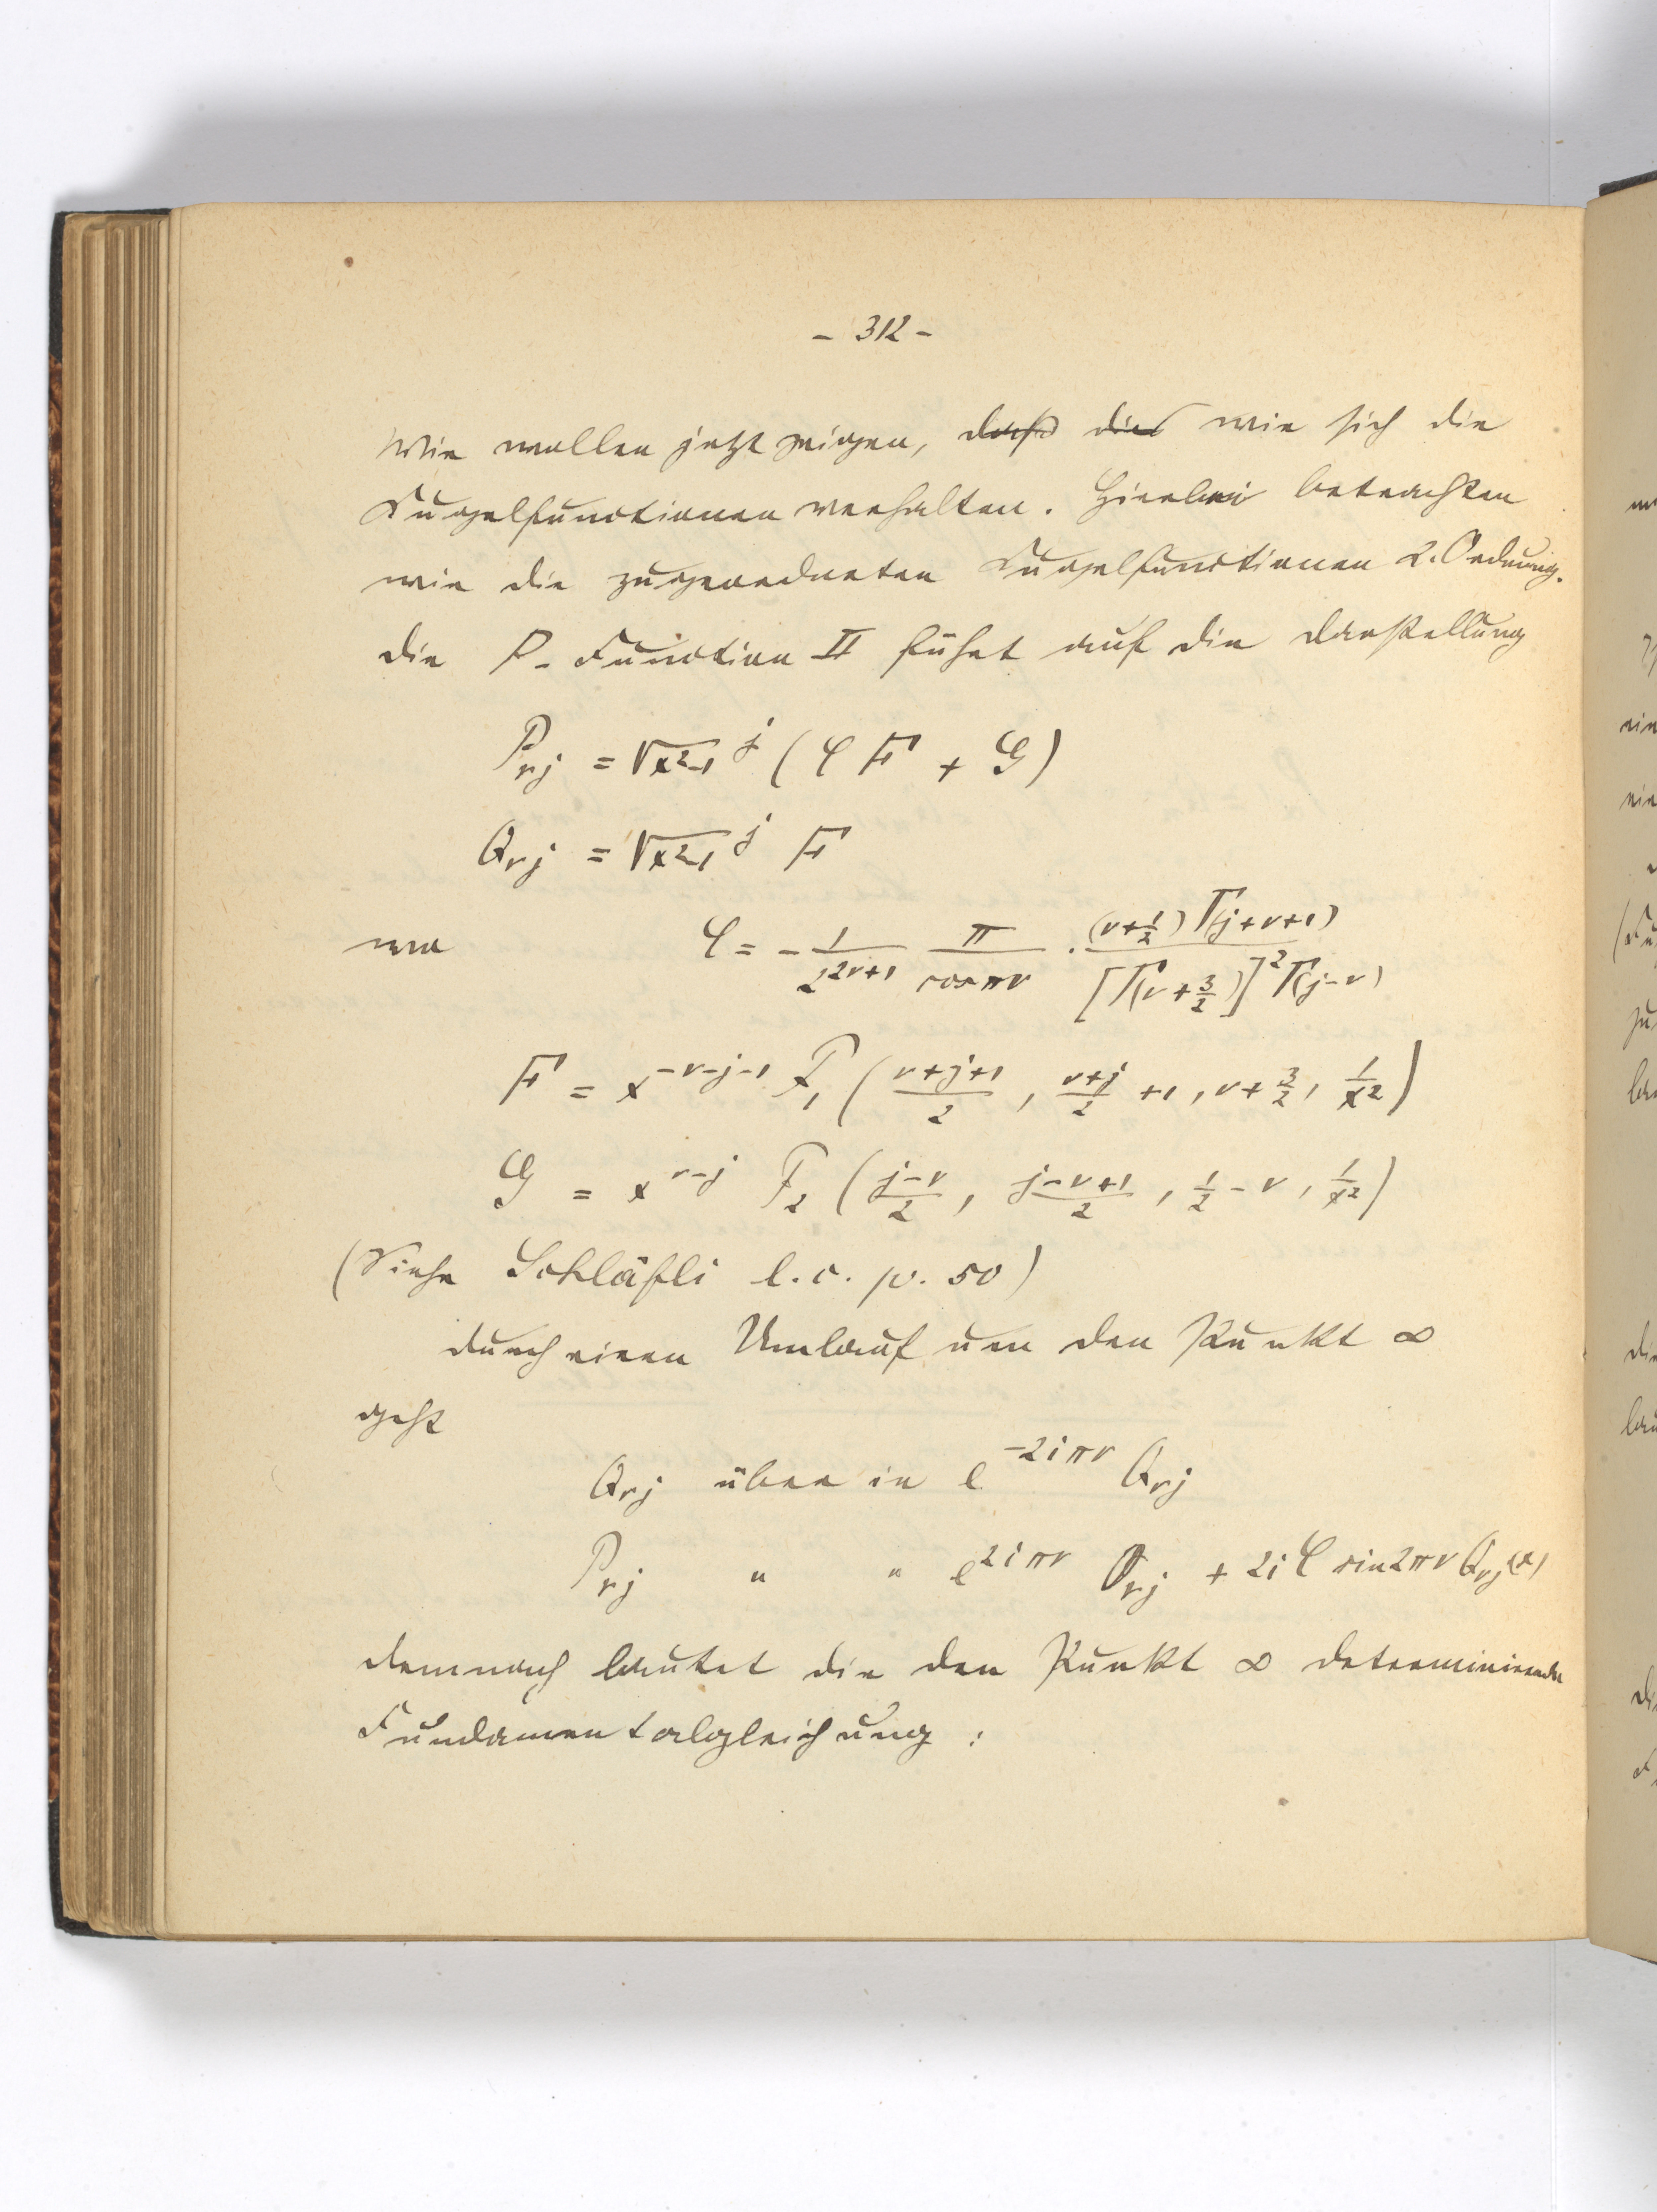 - 312 -
Wir wollen jetzt zeigen, daß dies wie sich die
Kugelfunctionen verhalten. Hierbei betrachten
wir die zugeordneten Kugelfunctionen 2. Ordnung.
die P-Function II führt auf die Darstellung
P_{νj} = √(x²-1)^j (φ F + G)
Q_{νj} = √(x²-1)^j F
wo φ = - 1/2^{2ν+1} π/cos πν · (ν+1/2) Γ(j+ν+1) / [Γ(ν+3/2)]² Γ(j-ν)
F = x^{-ν-j-1} F₁ ( (ν+j+1)/2 , (ν+j)/2 +1 , ν+3/2 , 1/x² )
G = x^{ν-j} F₂ ( (j-ν)/2 , (j-ν+1)/2 , 1/2 - ν , 1/x² )
(Siehe Schläfli l.c. p. 50)
durch einen Umlauf um den Punkt ∞
geht
Q_{νj} über in e^{-2iπν} Q_{νj}
P_{νj} " " e^{2iπν} P_{νj} + 2i φ sin 2πν Q_{νj}(x)
demnach lautet die den Punkt ∞ determinirende
Fundamentalgleichung :